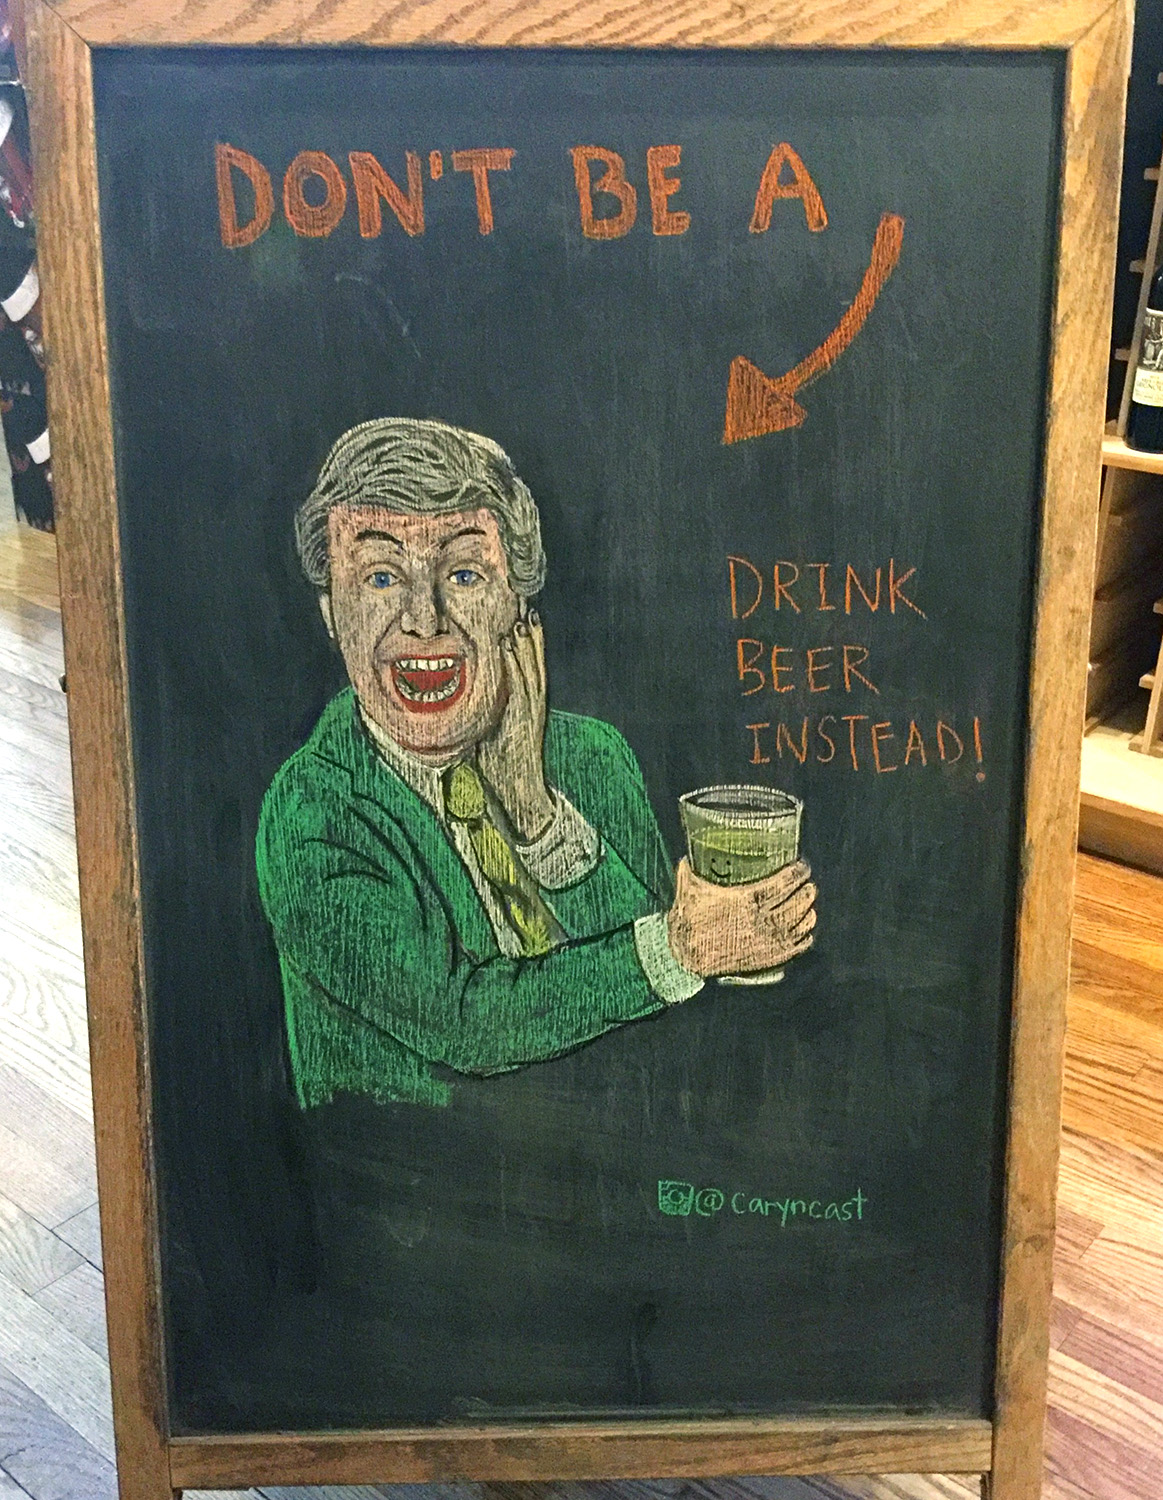 DON'T BE A
DRINK
BEER
INSTEAD!
@caryncast